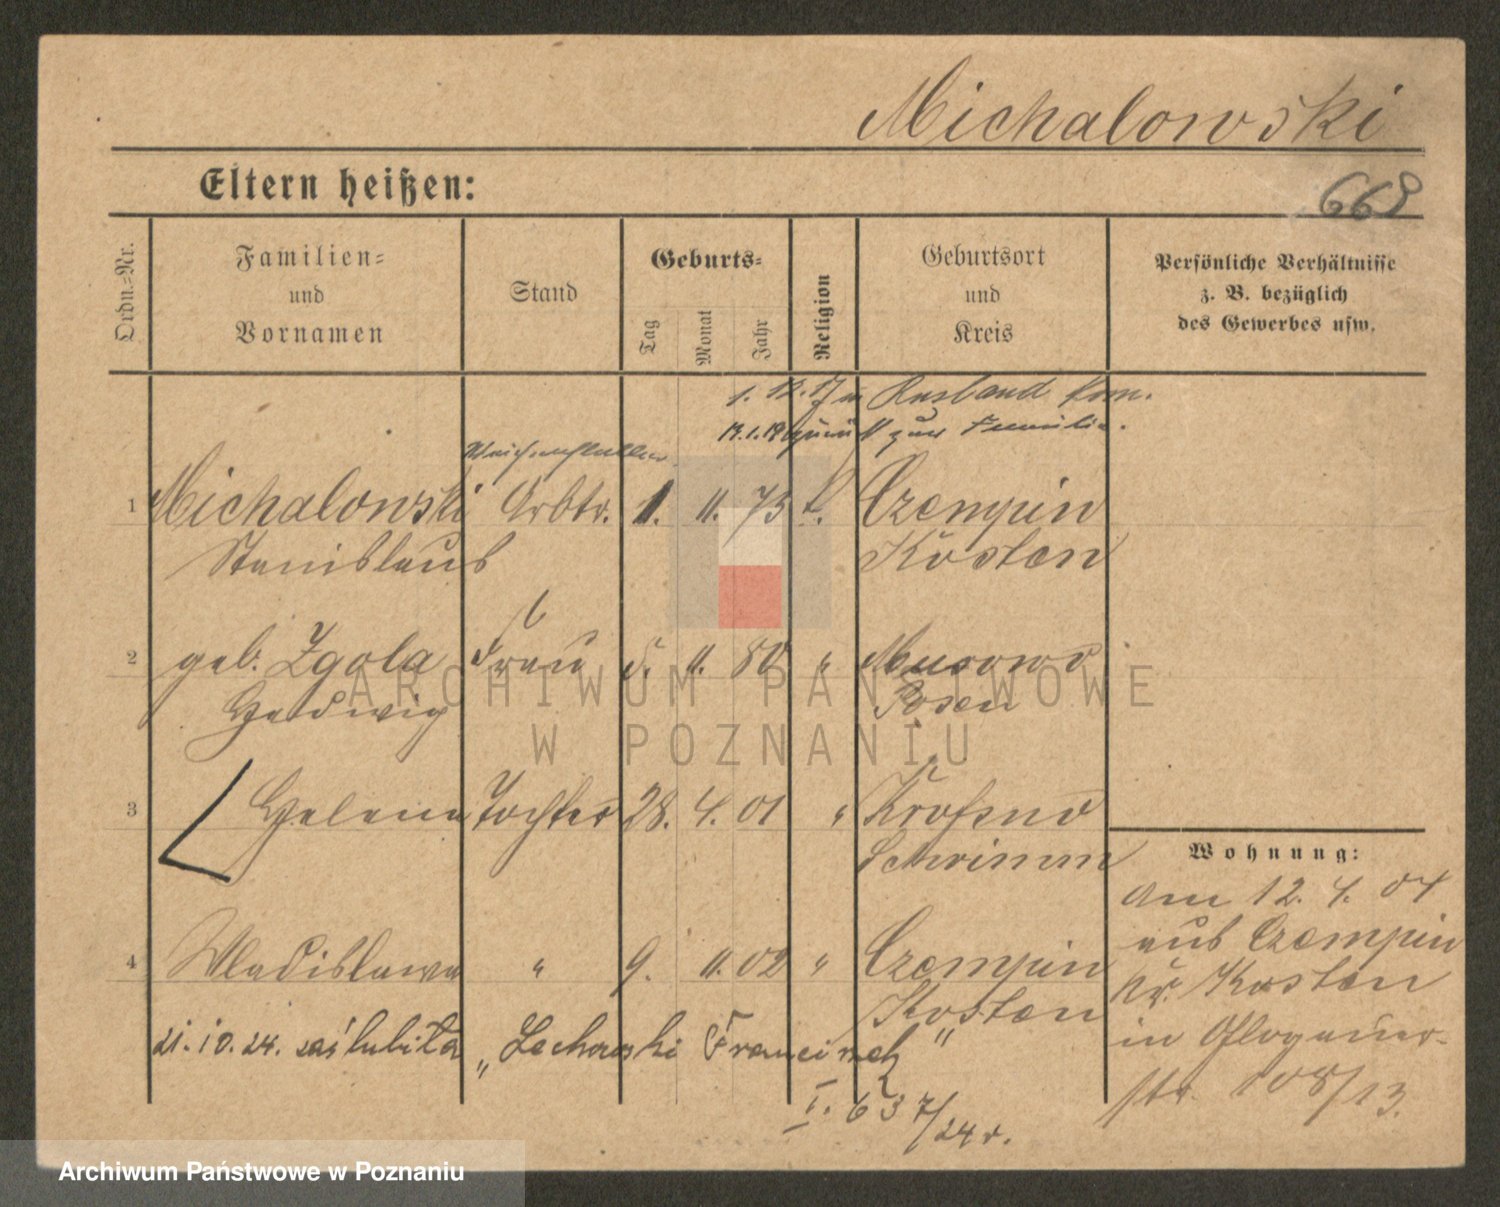 Michalowski
Eltern heißen:
669
Ordn.-Nr.
Familien-
und
Vornamen
Stand
Geburts-
Tag
Monat
Jahr
Religion
Geburtsort
und
Kreis
Persönliche Verhältnisse
z. B. bezüglich
des Gewerbes usw.
1. 12. 17 in Rusland kom.
19.1.19 zurück zur Familie.
Weichensteller
1 Michalowski Arbtr. 1. 11. 75 k. Czempin
Stanislaus Kosten
2 geb. Zgola Frau 5. 11. 80 " Murowo
Hedwig Posen
3 Helena Tochter 28. 4. 01 " Krossno
Schrimm
4 Wladislawa " 9. 11. 02 " Czempin
Kosten
21.10.24. zaślubiła „Lechowski Franciszek"
I. 637/24 r.
Wohnung:
am 12. 4. 04
aus Czempin
Kr. Kosten
in Glogauer-
str. 108/13.
ARCHIWUM PAŃSTWOWE
W POZNANIU
Archiwum Państwowe w Poznaniu